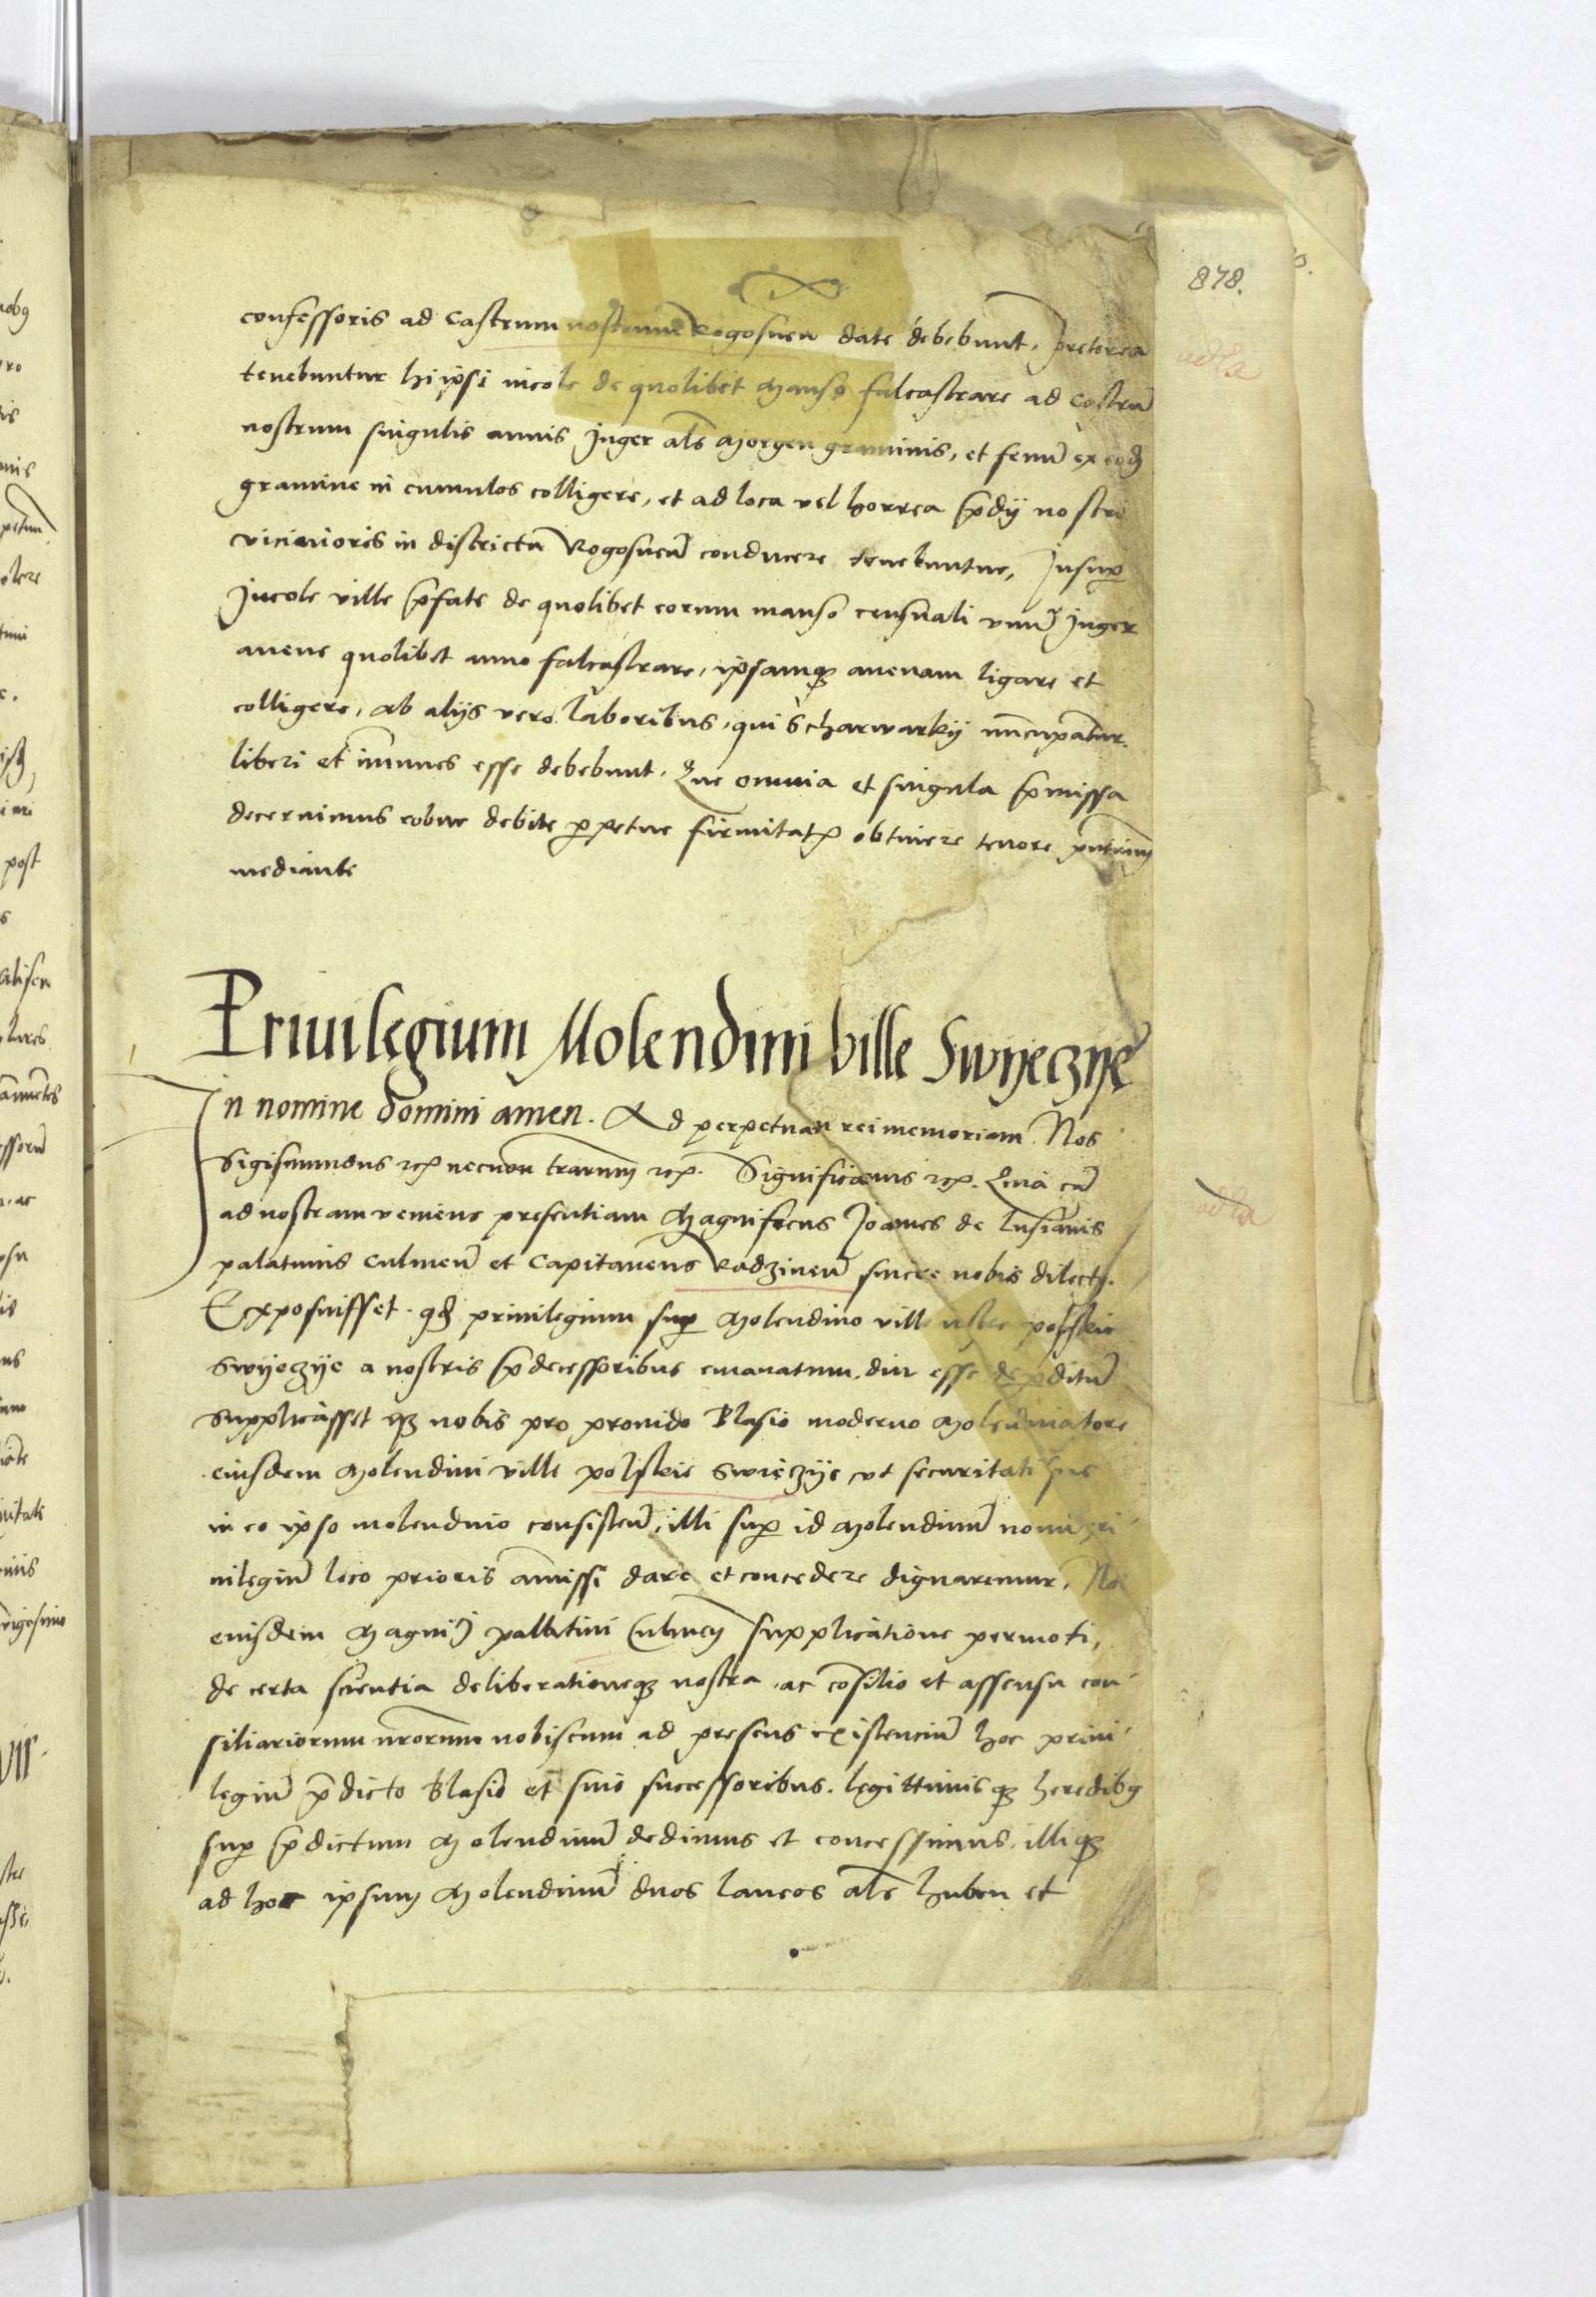 878.
confessoris ad Castrum nostrum Rogosneñ date debebunt. Preterea
tenebuntur hi ipsi incole de quolibet Manso falcastrare ad Castrũ
nostrum singulis annis Juger al̃s Morgen graminis, et fenũ ex eodẽ
gramine in cumulos colligere, et ad loca vel horrea p̃dij nostri
vicinioris in districtu Rogosneñ conducere tenebuntur, Insup
Incole ville p̃fate de quolibet eorum manso censuali vnũ Juger
avene quolibet anno falcastrare, ipsamq; avenam ligare et
colligere, Ab alijs vero laboribus, qui Scharwarkij nũcupãtur.
liberi et im̃unes esse debebunt. Que omnia et singula p̃missa
decernimus robur debite ppetue firmitatis obtinere tenore p̃ntium
mediante
Priuilegium Molendini ville Swyeczye
In nomine domini amen. Ad perpetuam rei memoriam Nos
Sigismundus etc. necnon terrarum etc. Significamus etc. Quia cũ
ad nostram veniens presentiam Magnificus Joannes de Lusianis
palatinus Culmeñ et Capitaneus Radzineñ sincere nobis dilectus.
Exposuisset. qđ priuilegium sup Molendino ville nostre polskie
Swyeczye a nostris p̃decessoribus emanatum. diu esse depditũ
Supplicasset q; nobis pro prouido Blasio moderno Molendinatore
eiusdem Molendini ville polskie Swieczije vt securitati sue
in eo ipso molendino consisteñ, illi sup id Molendinũ nouũ pri
uilegiũ loco prioris amissi dare et concedere dignaremur. Nos
eiusdem Magnifici pallatini Culmeñ supplicatione permoti,
de certa scientia deliberationeq; nostra ac cõsilio et assensu con
siliariorum nr̃orum nobiscum ad presens existenciũ hoc priui
legiũ p̃dicto Blasio et suis successoribus. legittimisq; heredibus
sup p̃dictum Molendinũ dedimus et concessimus. illiq;
ad hoc ipsum Molendinũ duos laneos al̃s huben et